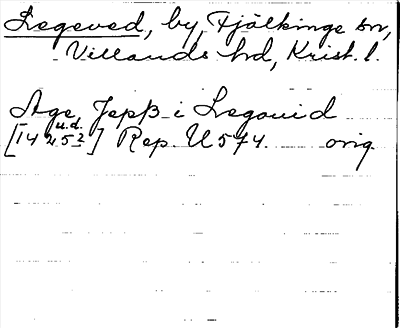 Legeved, by, Fjälkinge sn,
Villands hd, Krist. l.
Åge, Jepß i Legouid
u.d.
[14 25 2] Rep. U 574. orig.